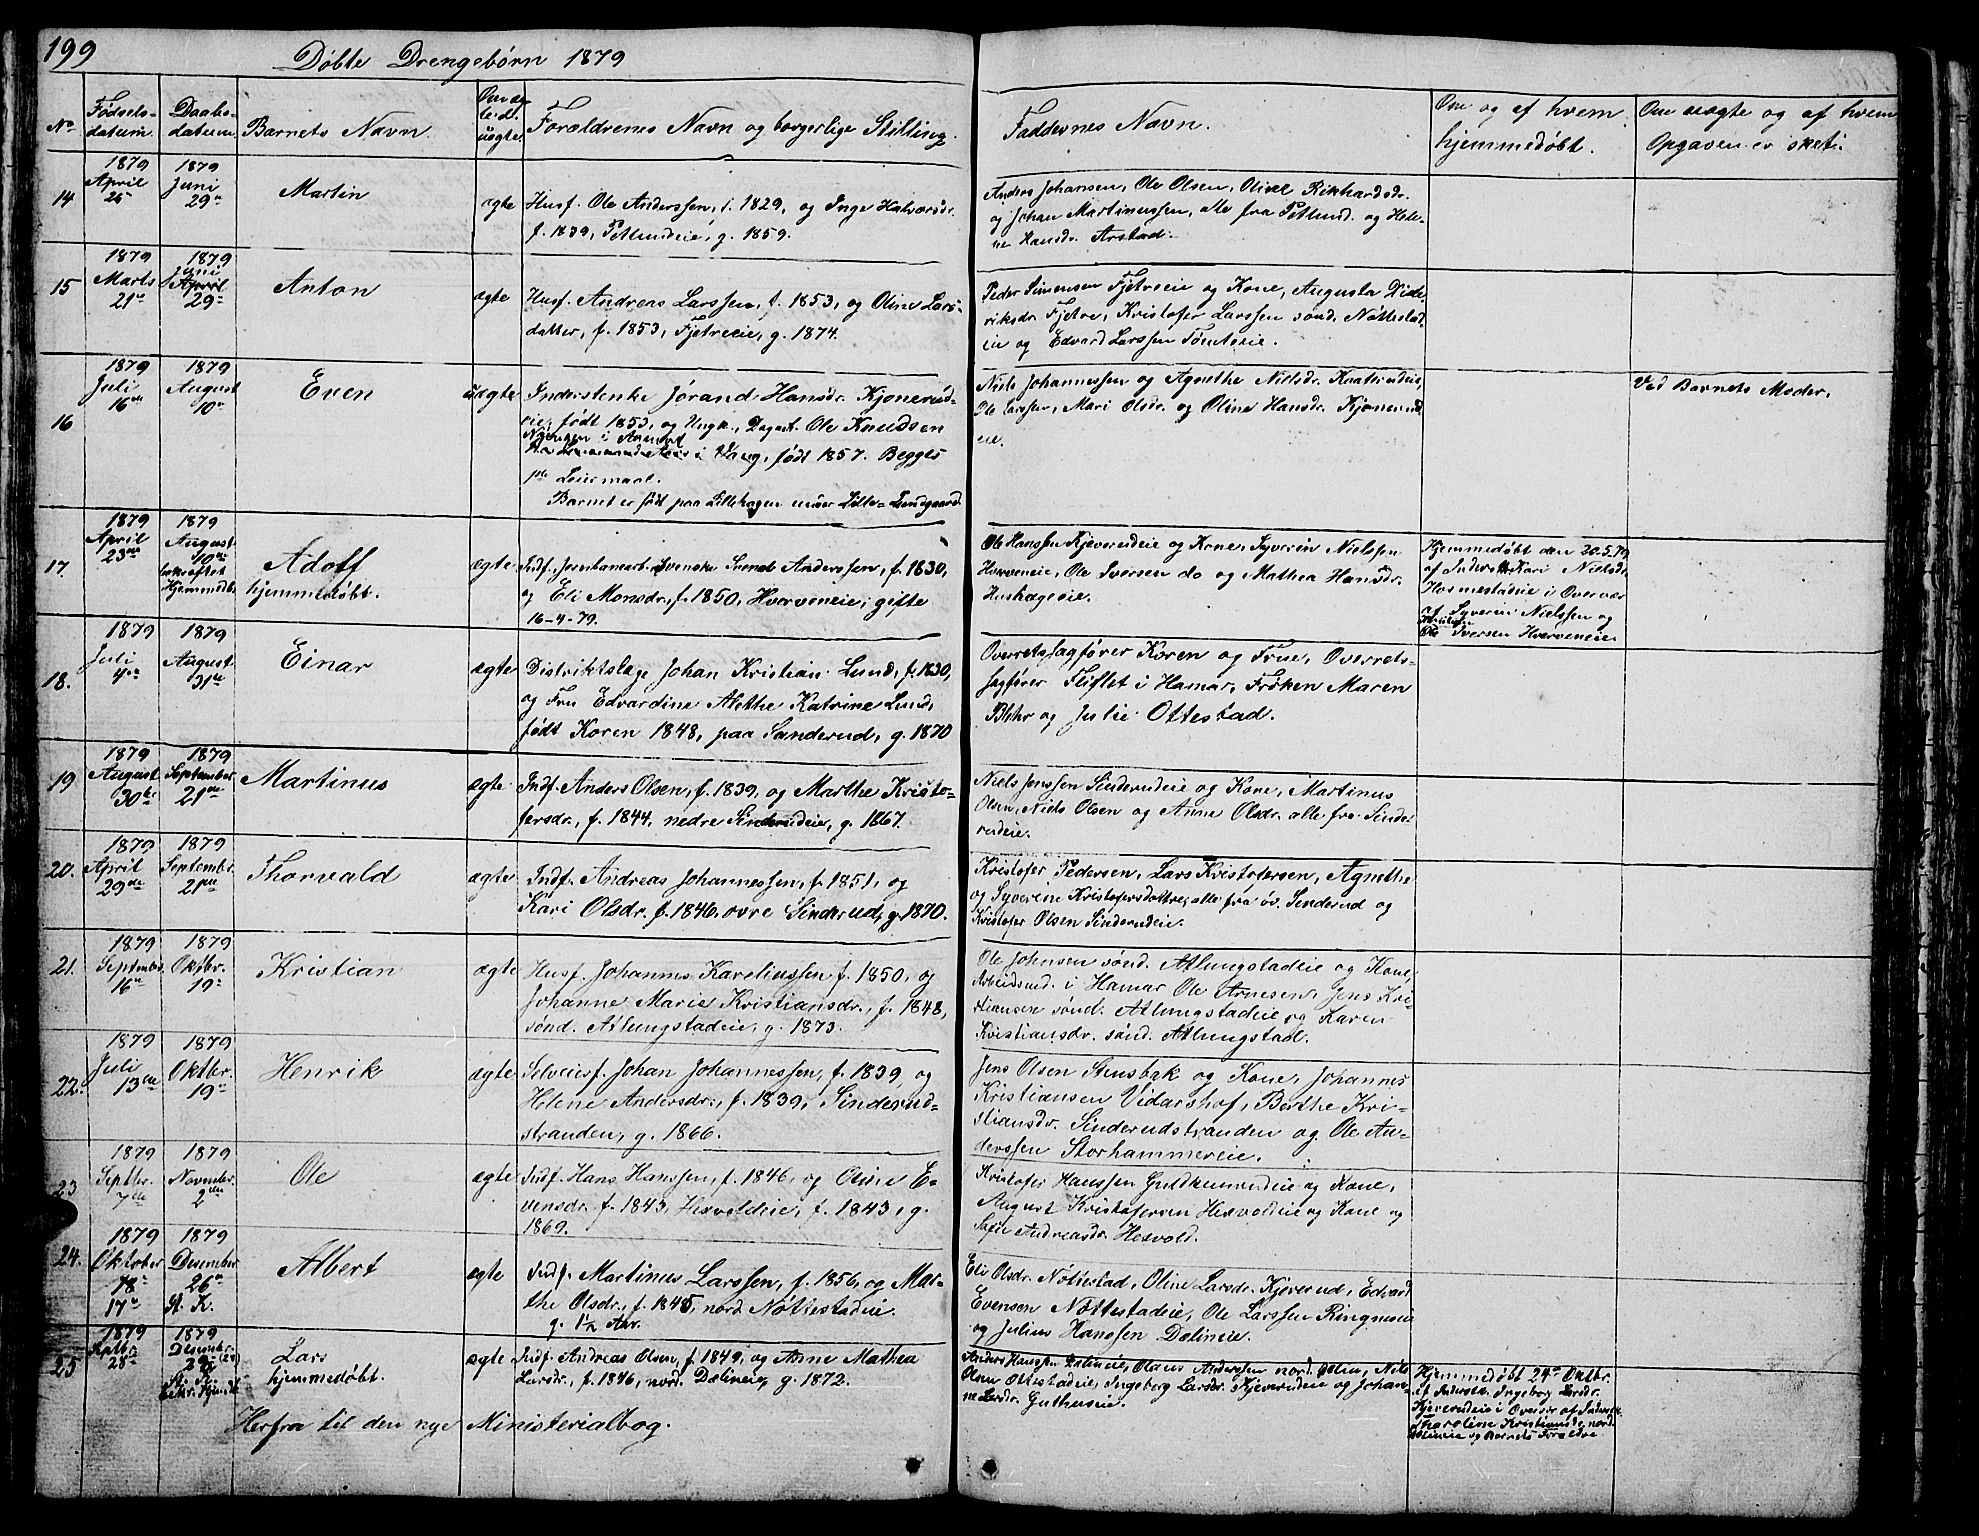 199
Døbte Drengebørn 1879
No
Fødsels-
datum.
Daabs-
datum
Barnets Navn.
Om æg-
te el.
uægte.
Forældrenes Navn og borgerlige Stilling.
Faddernes Navn.
Om og af hvem
hjemmedøbt.
Om uægte og af hvem
Opgaven er sket:
14
1879
April
25
1879
Juni
29
Martin
ægte
Husf. Ole Anderssen, f. 1829, og Inge Halvorsdr.
f. 1839, Petlundeie, g. 1859.
Anders Johansen, Ole Olsen, Oline Rikhardsdr.
og Johan Martinussen, alle fra Petlund. og Hele-
ne Hansdr. Arstad.
15
1879
Marts
21
1879
Juni
April
29
Anton
ægte
Husf. Andreas Larssen, f. 1853, og Oline Lars-
datter, f. 1853, Fjetreeie, g. 1874.
Peder Simensen Fjetreeie og Kone, Augusta Dide-
riksdr. Fjetre, Kristofer Larssen sønd. Nøttestad-
eie og Edvard Larssen Tømteeie.
16
1879
Juli
16
1879
August
10
Even
uægte
Inderstenke Jørand Hansdr. Kjonerud-
eie, født 1853, og Ungk., Dagarb. Ole Knudsen
i Vang, født 1857. Begges
1ste Leiermaal.
Barnet er født paa Lillehagen under Lille-Lundgaard.
Niels Johannessen og Agnethe Nielsdr. Knatterudeie,
Ole Larssen, Mari Olsdr. og Oline Hansdr. Kjonerud-
eie.
Ved Barnets Moder.
17.
1879
April
23
1879
August
10
bekræftet
Hjemmedb.
Adolf
hjemmedøbt.
ægte
Indf. Jernbanearb. Svenske Svend Anderssen, f. 1830,
og Eli Monsdr., f. 1850, Hverveneie; gifte
16-4-79.
Ole Hanssen Kjeverudeie og Kone, Syverin Nielssen
Hverveneie, Ole Iversen do og Mathea Hansdr.
Hushageeie.
Hjemmedøbt den 20.5.79
af Inderst. Kari Nielsdr.
Hosmestadeie i Overvær
af Syverin Nielssen og
Ole Iversen Hverveneie.
18.
1879
Juli
4
1879
August
31
Einar
ægte
Distriktslæge Johan Kristian Lund, f. 1830,
og Fru Edvardine Alethe Katrine Lund,
født Koren 1848, paa Sanderud, g. 1870
Overretssagfører Koren og Frue, Overrets-
sagfører Fliflet i Hamar, Frøken Maren
Blehr og Julie Ottestad.
19
1879
August
30
1879
September
21
Martinus
ægte
Indf. Anders Olsen, f. 1839, og Marthe Kristo-
fersdr., f. 1844, nedre Sinderudeie, g. 1867.
Niels Jenssen Sinderudeie og Kone, Martinus
Olsen, Niels Olsen og Anne Olsdr. alle fra Sinde-
rudeie.
20.
1879
April
29
1879
Septembr.
21
Thorvald
ægte
Indf. Andreas Johannessen, f. 1851, og
Kari Olsdr. f. 1846, øvre Sinderud, g. 1870.
Kristofer Pedersen, Lars Kristofersen, Agnethe
og Syverine Kristofersdøttre, alle fra øv. Sinderud og
Kristofer Olsen Sinderudeie.
21.
1879
Septembr.
16
1879
Oktbr.
19
Kristian
ægte
Husf. Johannes Kareliussen f. 1850, og
Johanne Marie Kristiansdr., f. 1848,
sønd. Atlungstadeie, g. 1873.
Ole Johnsen sønd. Atlungstadeie og Kone,
Arbeidsmd. i Hamar Ole Arnesen, Jens Kri-
stiansen sønd. Atlungstadeie og Karen
Kristiansdr. sønd. Atlungstad.
22.
1879
Juli
13
1879
Oktbr.
19
Henrik
ægte
Selveiesf. Johan Johannessen, f. 1839, og
Helene Andersdr., f. 1839, Sinderud-
stranden, g. 1866.
Jens Olsen Stensbak og Kone, Johannes
Kristiansen Vidarshof, Berthe Kri-
stiansdr. Sinderudstranden og Ole An-
derssen Storhammereie.
23
1879
Septbr.
7
1879
November
9
Ole
ægte
Indf. Hans Hanssen, f. 1846, og Oline E-
vensdr. f. 1843, Hexvoldeie, f. 1843, g.
1869.
Kristofer Hanssen Guldkunrudeie og Kone,
August Kristofersen Hexvoldeie og Kone og
Sofie Andreasdr. Hexvold.
24.
1879
Oktober
18
17
1879
Desember
26
St. K.
Albert
ægte
Indf. Martinus Larssen, f. 1856, og Mar-
the Olsdr., f. 1845, nord. Nøttestadeie.
g. 1½ Aar.
Eli Olsdr. Nøttestad, Oline Larsdr. Kjeverud, Edvard
Evensen Nøttestadeie, Ole Larssen Ringneseie
og Julius Hanssen Dælineie.
25
1879
Septbr.
28
1879
Desembr.
29
St. K.
Bekr. Hjemdb.
Lars
hjemmedøbt.
ægte
Indf. Andreas Olsen, f. 1849, og Anne Mathea
Larsdr., f. 1846, nord. Dælineie, g. 1872.
Anders Hanssen Dælineie, Olaus Anderssen nord. Dælin, Nils
Olsen Ottestadeie, Ingeborg Larsdr. Kjeverudeie og Johan-
ne Larsdr. Guthuseie.
Hjemmedøbt 24 Oktbr.
af Inderstk. Ingeborg Larsdr.
Kjeverudeie i Overvær af Inderstk.
Karoline Kristiansdr. nord.
Dælineie og Barnets Forældre
Herfra til den nye Ministerialbog.